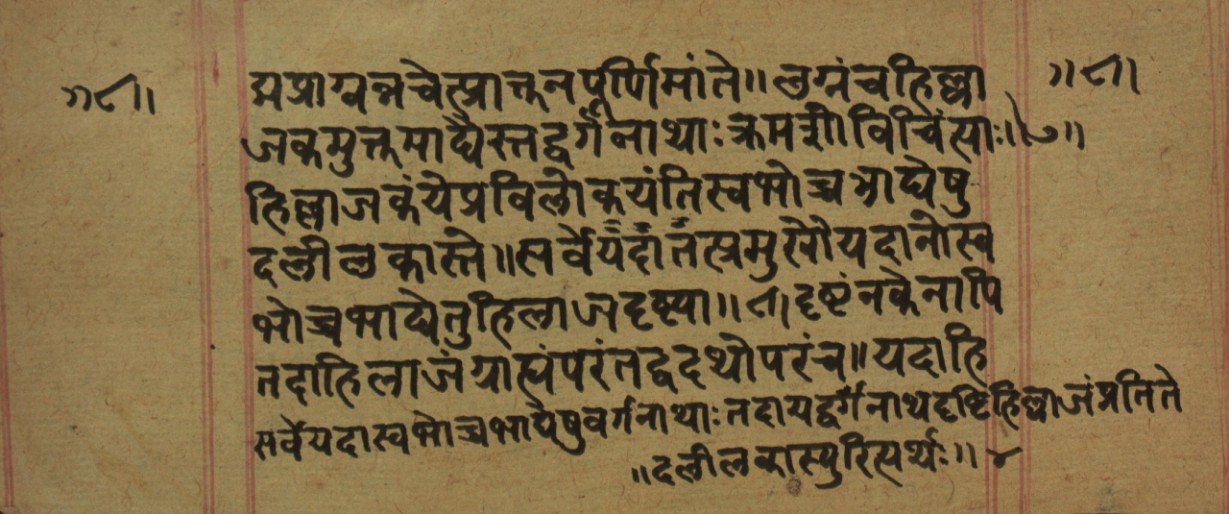 द्मप्राग्वन्नचेत्प्राक्तनपूर्णिमांते॥ लग्नंचहिल्ला
जकमुक्तमाद्यैस्तद्वर्गनाथाः क्रमशो विचिंत्याः॥७॥
हिल्लाजकंयेप्रविलोकयंतिस्वभोच्चभाद्येषु
दलीलकास्ते॥सर्वे यदा तस्त्रमुखेयदानोस्व
भोच्चभाद्येतुहिलाजदृष्ट्या॥८॥दृष्टंनकेनापि
तदाहिलाजंग्राह्यंपरंतद्वदथोपरंच॥यदाहि
सर्वेयदास्वभोच्चभाद्येषुवर्गनाथाःतदायद्वर्गनाथदृष्टिहिल्लाजंप्रतिते
॥दलीलकास्युरित्यर्थः॥ ४
॥८॥
॥८॥